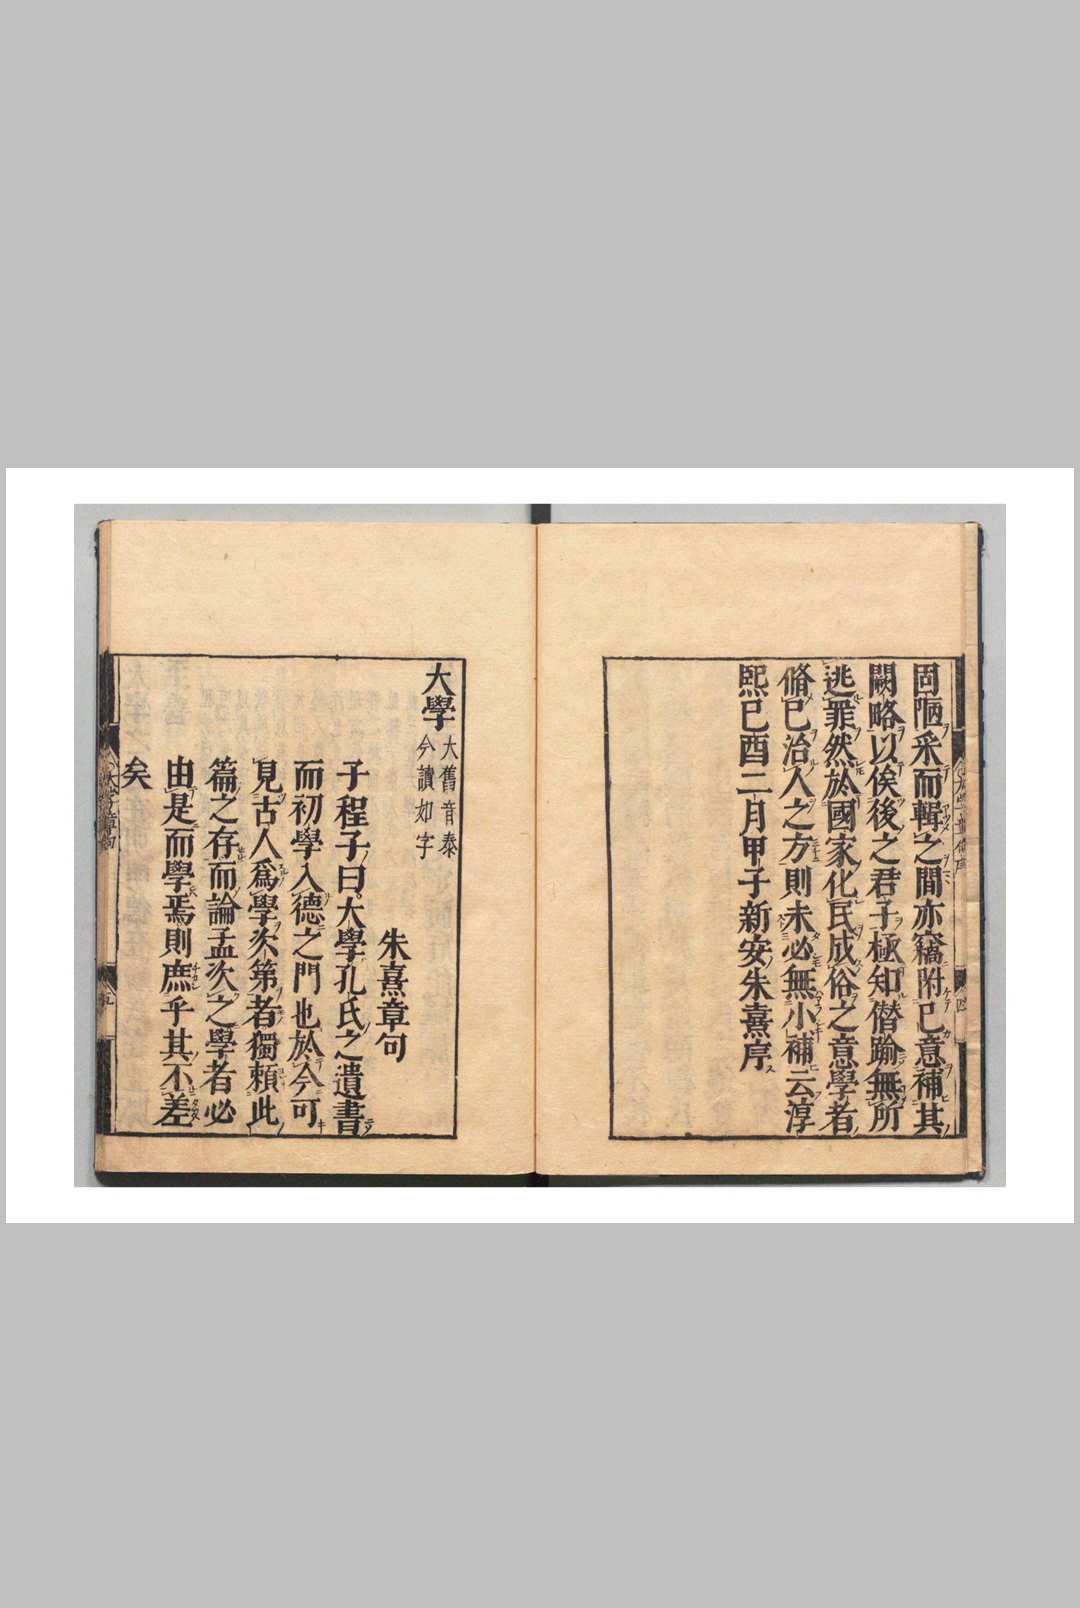 固陋采而輯之間亦竊附己意補其
闕略以俟後之君子極知僭踰無所
逃罪然於國家化民成俗之意學者
脩己治人之方則未必無小補云淳
熙己酉二月甲子新安朱熹序
大學
大舊音泰
今讀如字
朱熹章句
子程子曰大學孔氏之遺書
而初學入德之門也於今可
見古人爲學次第者獨賴此
篇之存而論孟次之學者必
由是而學焉則庶乎其不差
矣